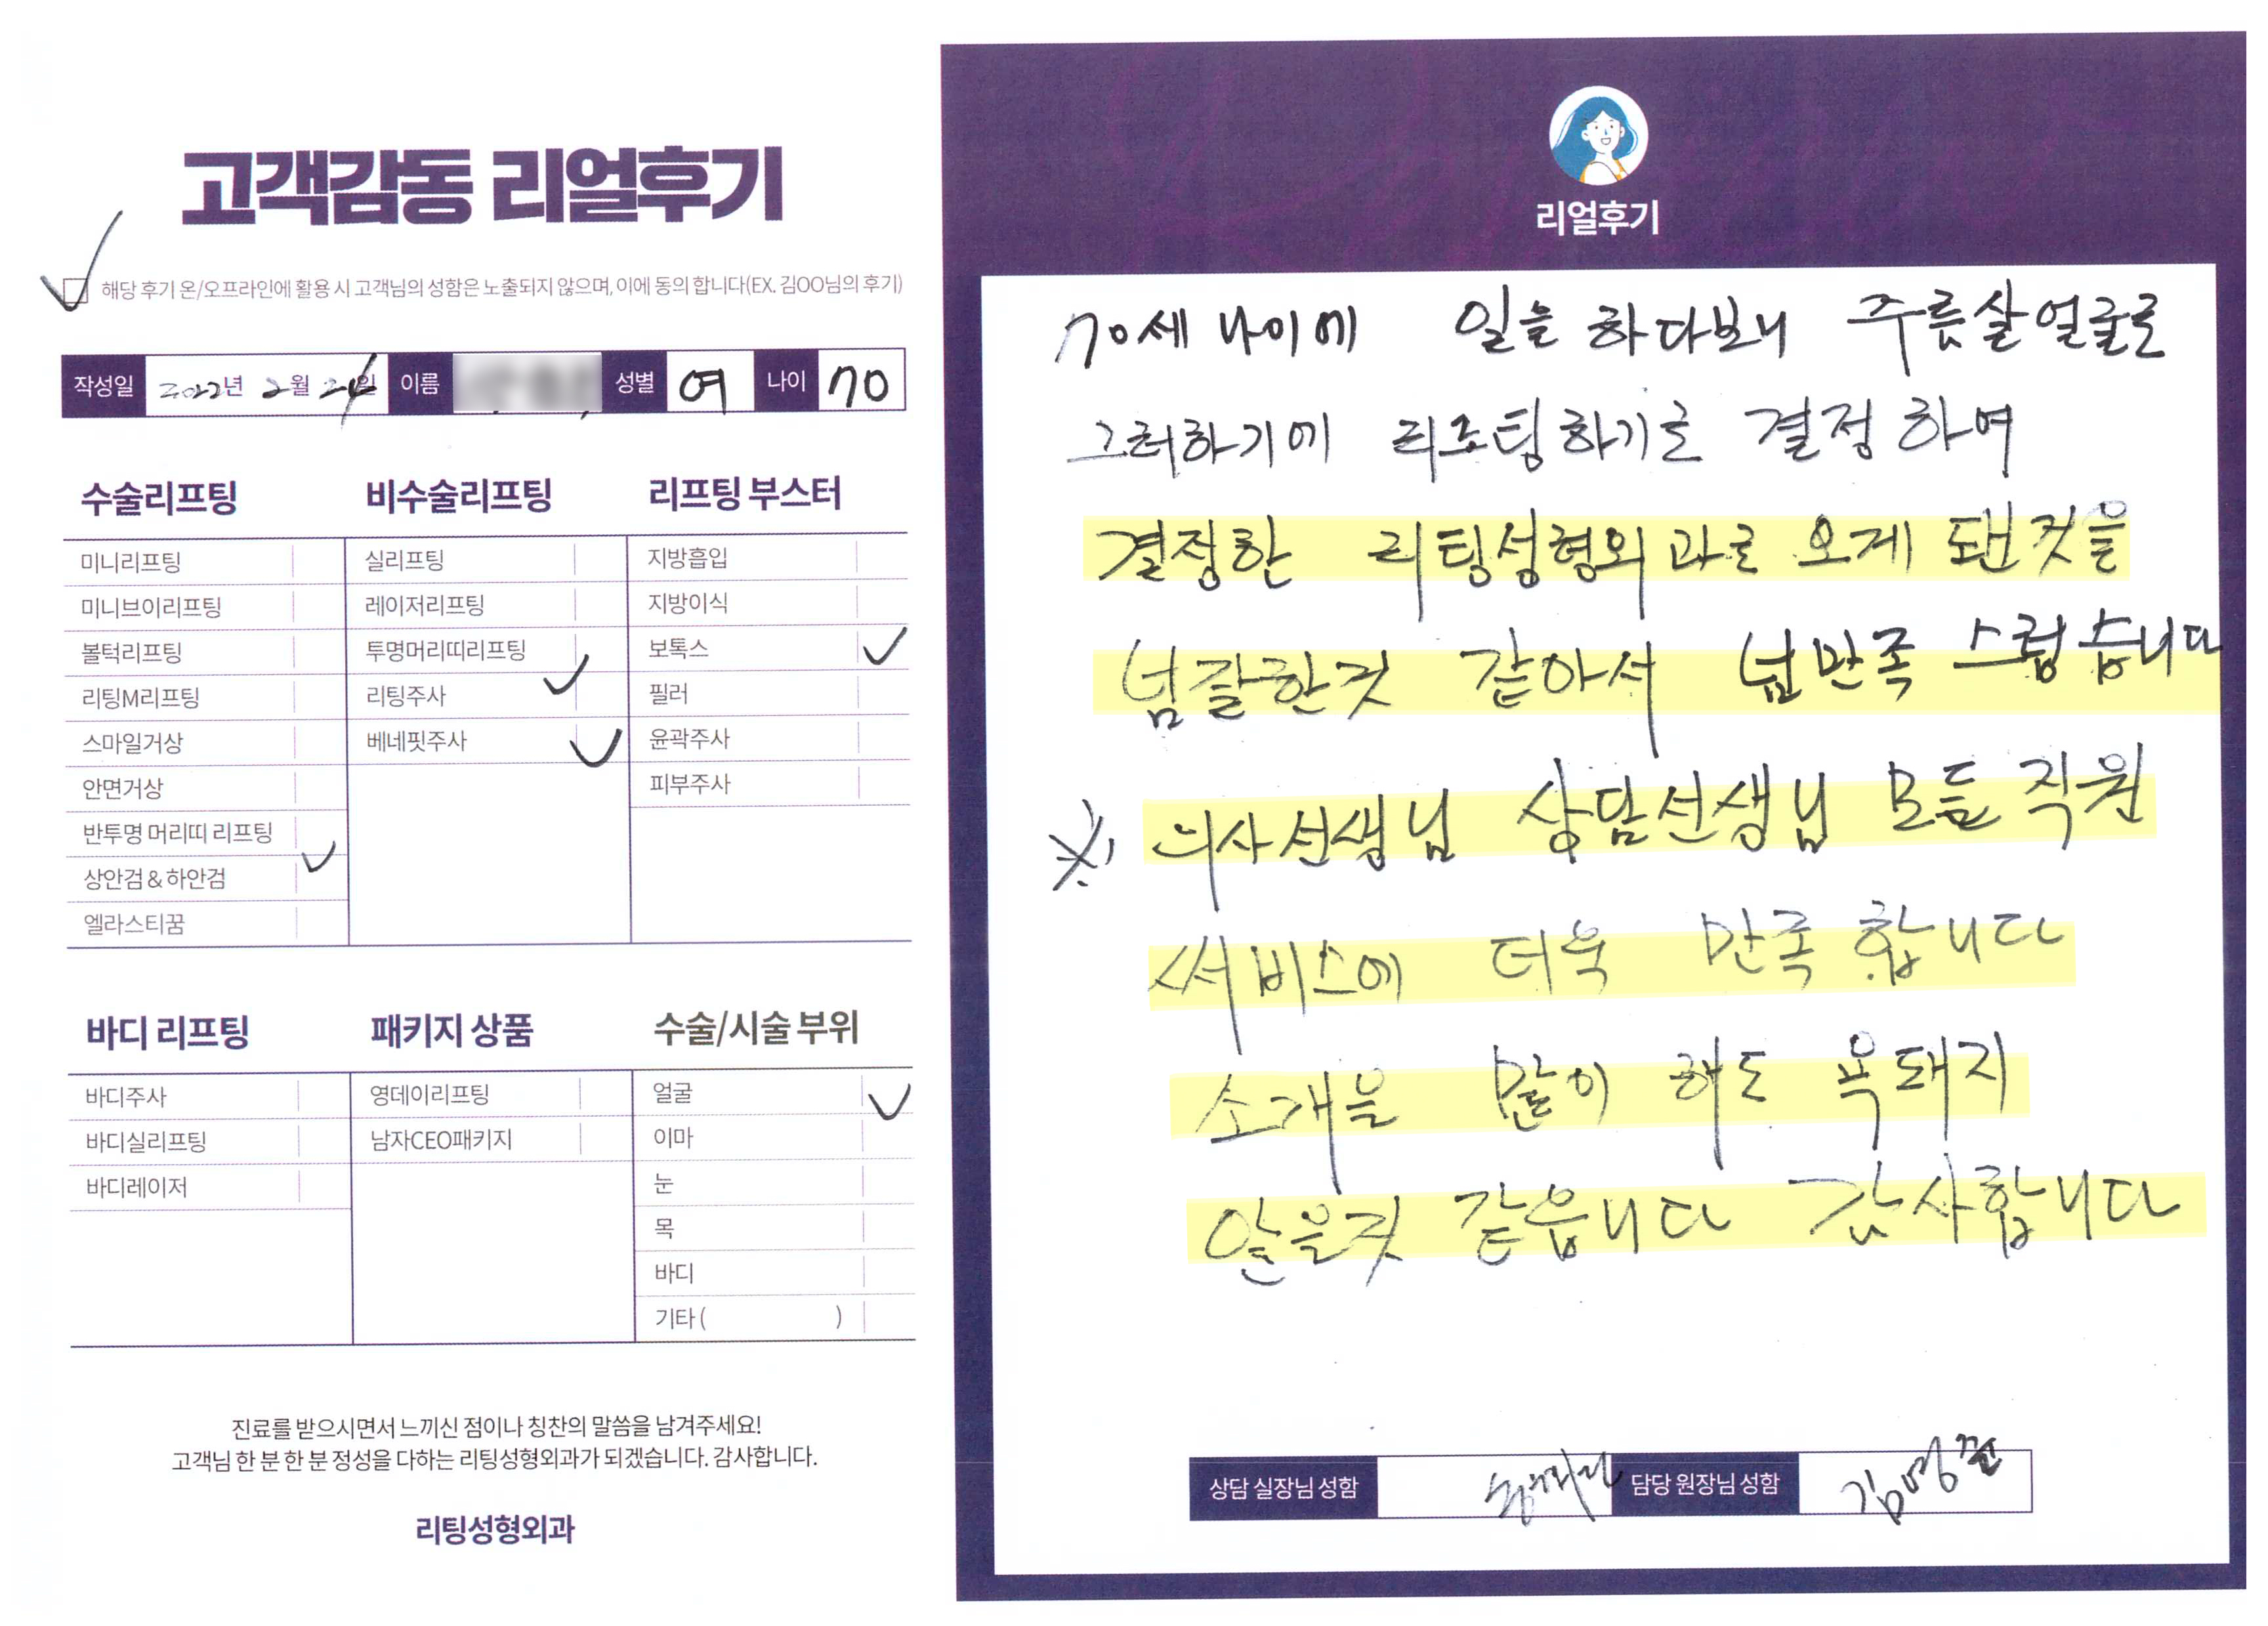 고객감동 리얼후기
해당 후기 온/오프라인에 활용 시 고객님의 성함은 노출되지 않으며, 이에 동의 합니다(EX. 김OO님의 후기)
작성일 2022년 2월 24일 이름 성별 여 나이 70
수술리프팅
미니리프팅
미니브이리프팅
볼턱리프팅
리팅M리프팅
스마일거상
안면거상
반투명 머리띠 리프팅
상안검 & 하안검
엘라스티꿈
비수술리프팅
실리프팅
레이저리프팅
투명머리띠리프팅
리팅주사
베네핏주사
리프팅 부스터
지방흡입
지방이식
보톡스
필러
윤곽주사
피부주사
바디 리프팅
바디주사
바디실리프팅
바디레이저
패키지 상품
영데이리프팅
남자CEO패키지
수술/시술 부위
얼굴
이마
눈
목
바디
기타 ( )
진료를 받으시면서 느끼신 점이나 칭찬의 말씀을 남겨주세요!
고객님 한 분 한 분 정성을 다하는 리팅성형외과가 되겠습니다. 감사합니다.
리팅성형외과
리얼후기
70세 나이에 일을 하다보니 주름살얼굴로
그러하기에 리프팅하기로 결정하여
결정한 리팅성형외과로 오게 됀것을
넘잘한것 같아서 넘만족 스럽습니다
※ 의사선생님 상담선생님 모든 직원
써비스에 더욱 만족합니다
소개을 많이 해도 욕돼지
안을것 같읍니다 감사합니다
상담 실장님 성함 담당 원장님 성함